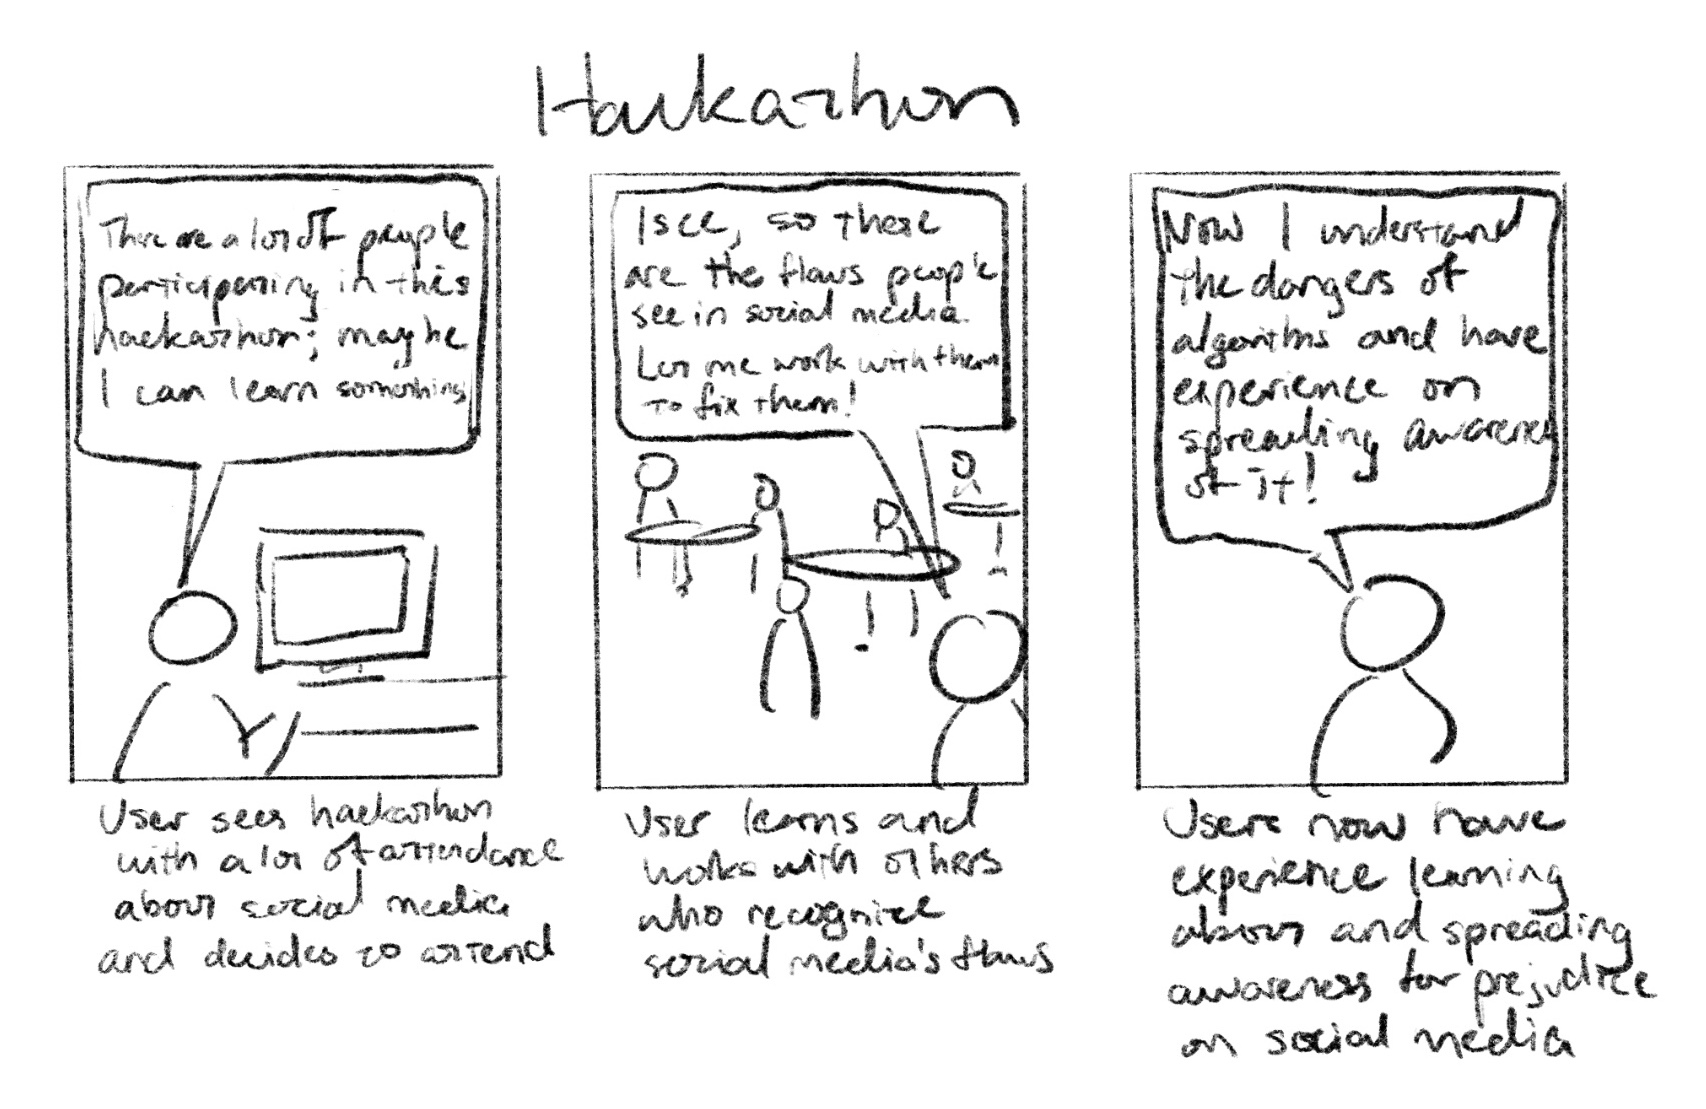 Hackathon
There are a lot of people
participating in this
hackathon; maybe
I can learn something
User sees hackathon
with a lot of attendance
about social media
and decides to attend
I see, so these
are the flaws people
see in social media.
Let me work with them
to fix them!
User learns and
works with others
who recognize
social media's flaws
Now I understand
the dangers of
algorithms and have
experience on
spreading awareness
of it!
Users now have
experience learning
about and spreading
awareness for prejudice
on social media